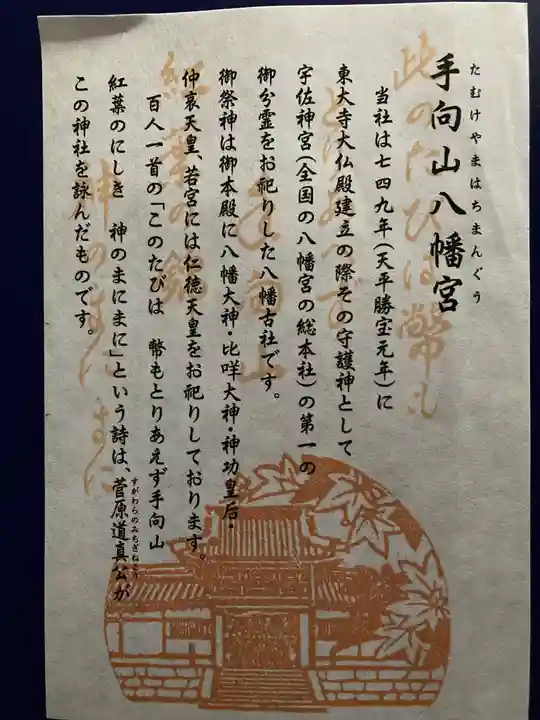 たむけやまはちまんぐう
手向山八幡宮
当社は七四九年(天平勝宝元年)に
東大寺大仏殿建立の際その守護神として
宇佐神宮(全国の八幡宮の総本社)の第一の
御分霊をお祀りした八幡古社です。
御祭神は御本殿に八幡大神・比咩大神・神功皇后・
仲哀天皇、若宮には仁徳天皇をお祀りしております。
百人一首の「このたびは 幣もとりあえず手向山
紅葉のにしき 神のまにまに」という詩は、菅原道真公が
すがわらのみちざねこう
この神社を詠んだものです。
此のたびは幣も
とりあへず
手向山
紅葉の錦
神のまにまに